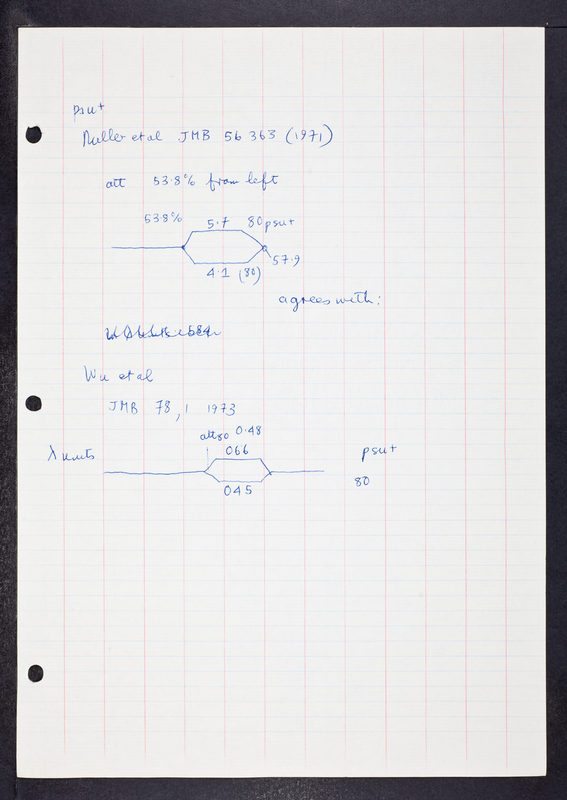 psu+
Miller et al JMB 56 363 (1971)
att 53.8% from left
53.8% 5.7 80psu+
57.9
4.1 (80)
agrees with:
Wu et al
JMB 78, 1 1973
att80 0.48
λ units 066 psu+
045 80